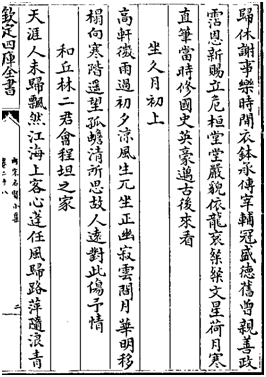 歸休謝事樂時閒衣鉢永傳宰輔冠盛德舊曾親善政
霑恩新賜立危桓堂堂嚴貌依龍衮粲粲文星荷月寒
直筆當時修國史英豪邁古後來看
坐久月初上
高軒微雨過初夕凉風生兀坐正幽寂雲間月華明移
榻向寒階遥望孤蟾清所思故人遠對此傷予情
和丘林二君會程坦之家
天涯人未歸飄然江海上客心蓬任風歸路萍隨浪青
欽定四庫全書
兩宋名賢小集
卷二十八
二